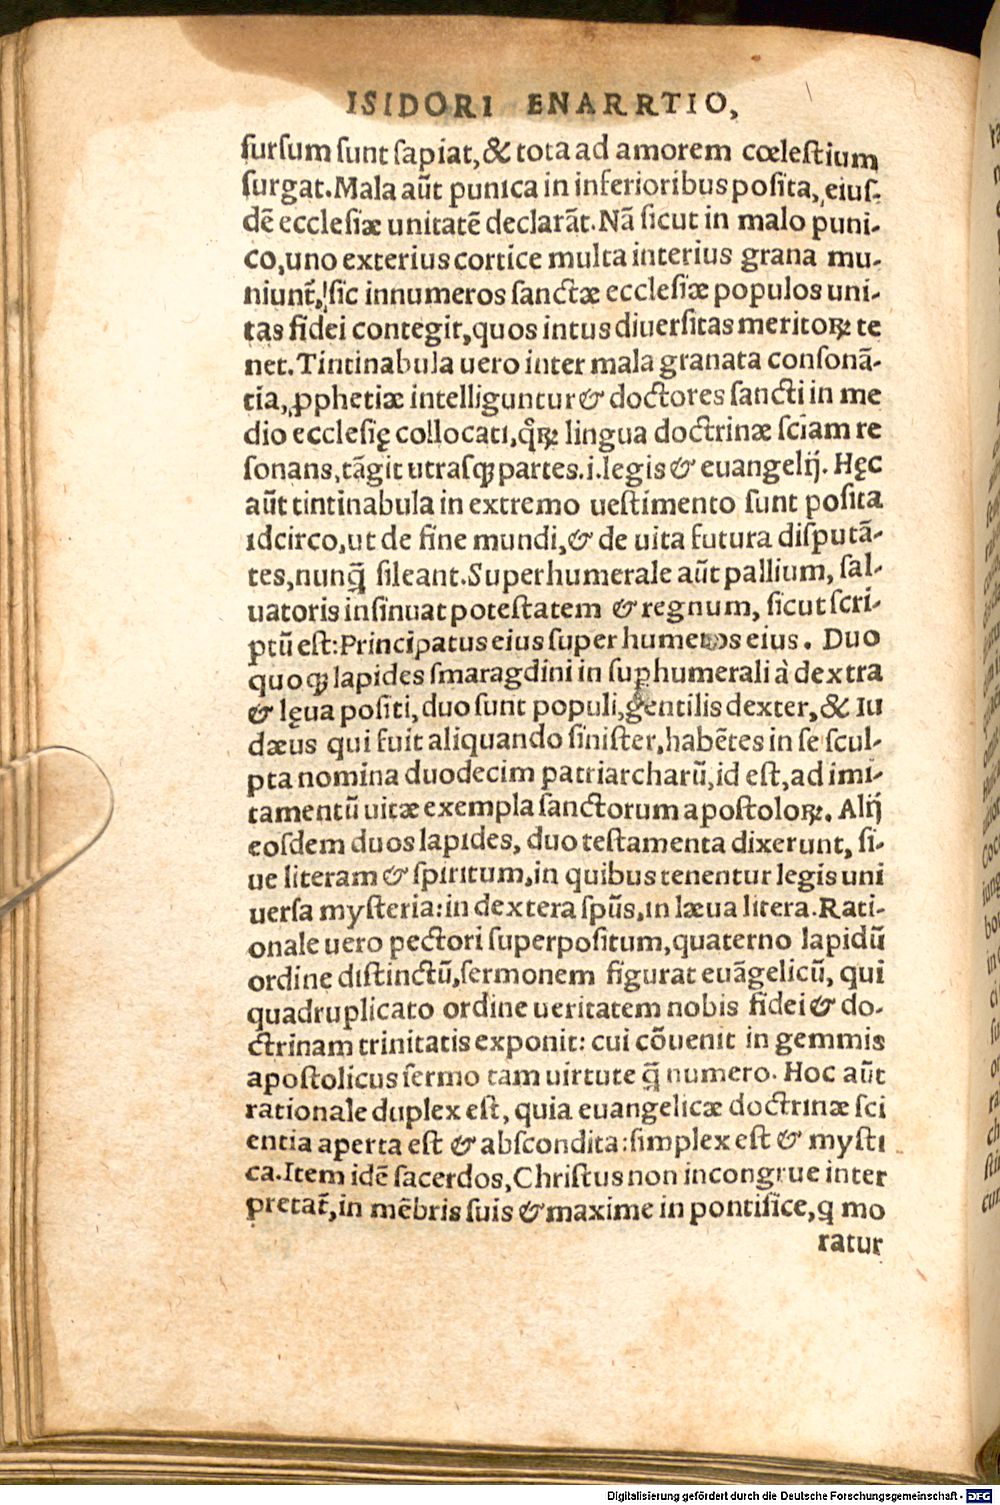 ISIDORI ENARRTIO,
ſurſum ſunt ſapiat, & tota ad amorem cœleſtium
ſurgat. Mala aūt punica in inferioribus poſita, eiuſ-
dē eccleſiæ unitatē declarāt. Nā ſicut in malo puni-
co, uno exterius cortice multa interius grana mu-
niunt̃, ſic innumeros ſanctæ eccleſiæ populos uni-
tas fidei contegit, quos intus diuerſitas meritoꝝ te
net. Tintinabula uero inter mala granata conſonā-
tia, ꝓphetiæ intelliguntur & doctores ſancti in me
dio eccleſię collocati, qͦꝝ lingua doctrinæ ſciam re
ſonans, tāgit utraſqꝫ partes .i. legis & euangelij. Hęc
aūt tintinabula in extremo ueſtimento ſunt poſita
idcirco, ut de fine mundi, & de uita futura diſputā-
tes, nunq̃ ſileant. Superhumerale aūt pallium, ſal-
uatoris inſinuat poteſtatem & regnum, ſicut ſcri-
ptū eſt: Principatus eius ſuper humeros eius. Duo
quoqꝫ lapides ſmaragdini in suꝑhumerali à dextra
& lęua poſiti, duo sunt populi, gentilis dexter, & Iu
dæus qui fuit aliquando ſiniſter, habētes in ſe ſcul-
pta nomina duodecim patriarcharū, id eſt, ad imi-
tamentū uitæ exempla ſanctorum apoſtoloꝝ. Alij
eoſdem duos lapides, duo teſtamenta dixerunt, ſi-
ue literam & ſpiritum, in quibus tenentur legis uni
uerſa myſteria: in dextera ſpūs, in læua litera. Rati-
onale uero pectori ſuperpoſitum, quaterno lapidū
ordine diſtinctū, ſermonem figurat euāgelicū, qui
quadruplicato ordine ueritatem nobis fidei & do-
ctrinam trinitatis exponit: cui cōuenit in gemmis
apoſtolicus ſermo tam uirtute q̃ numero. Hoc aūt
rationale duplex eſt, quia euangelicæ doctrinæ ſci
entia aperta eſt & abſcondita: ſimplex eſt & myſti
ca. Item idē ſacerdos, Chriſtus non incongrue inter
pretat̃, in mēbris ſuis & maxime in pontifice, q mo
ratur
Digitalisierung gefördert durch die Deutsche Forschungsgemeinschaft - DFG